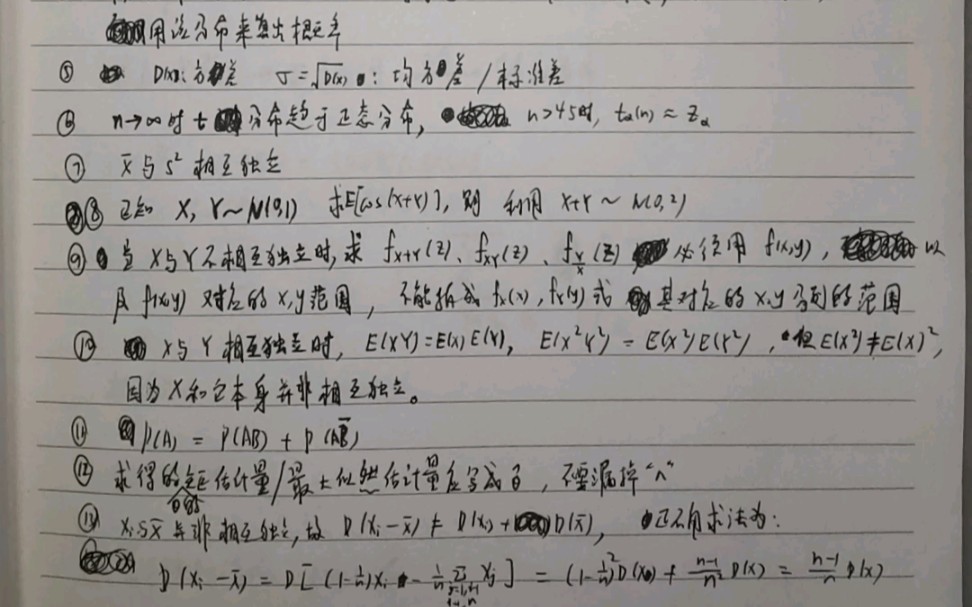 用该分布来算出概率
⑤ D(x): 方差 σ=√D(x) : 均方差/标准差
⑥ n→∞时 t 分布趋于正态分布, n>45时, tα(n) ≈ Zα
⑦ x̄与S² 相互独立
⑧ 已知 X, Y~N(0,1) 求E[cos(X+Y)], 则 利用 X+Y ~ N(0,2)
⑨ 当 X与Y不相互独立时, 求 f_{X+Y}(z)、f_{XY}(z)、f_{Y/X}(z) 必须用 f(x,y), 以
及 f(x,y) 对应的 x,y范围, 不能拆成 fx(x), fY(y) 或 其对应的 x,y 各自的范围
⑩ X与Y 相互独立时, E(XY)=E(x)E(Y), E(X²Y²) = E(X²)E(Y²), 但E(X²)≠E(X)²,
因为X和它本身并非相互独立。
⑪ P(A) = P(AB) + P(AB̄)
⑫ 求得θ的矩估计量/最大似然估计量应写成θ̂, 不要漏掉"∧"
⑬ Xi与x̄ 并非相互独立, 故 D(Xi-x̄) ≠ D(Xi)+D(x̄), 正确求法为:
D(Xi-x̄) = D[(1-1/n)Xi - 1/n Σ Xj] = (1-1/n)²D(x) + (n-1)/n² D(x) = (n-1)/n D(x)